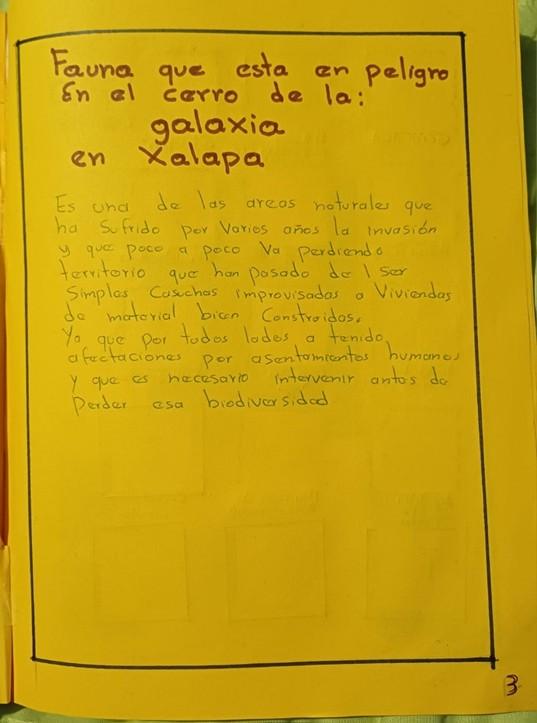 Fauna que esta en peligro
En el cerro de la:
galaxia
en Xalapa
Es una de las areas naturales que
ha Sufrido por Varios años la invasión
y que poco a poco Va perdiendo
territorio que han pasado de l ser
Simples Casuchas improvisadas a Viviendas
de material bien Construidas.
Ya que por todos lados a tenido
afectaciones por asentamientos humanos
y que es necesario intervenir antes de
Perder esa biodiversidad
3